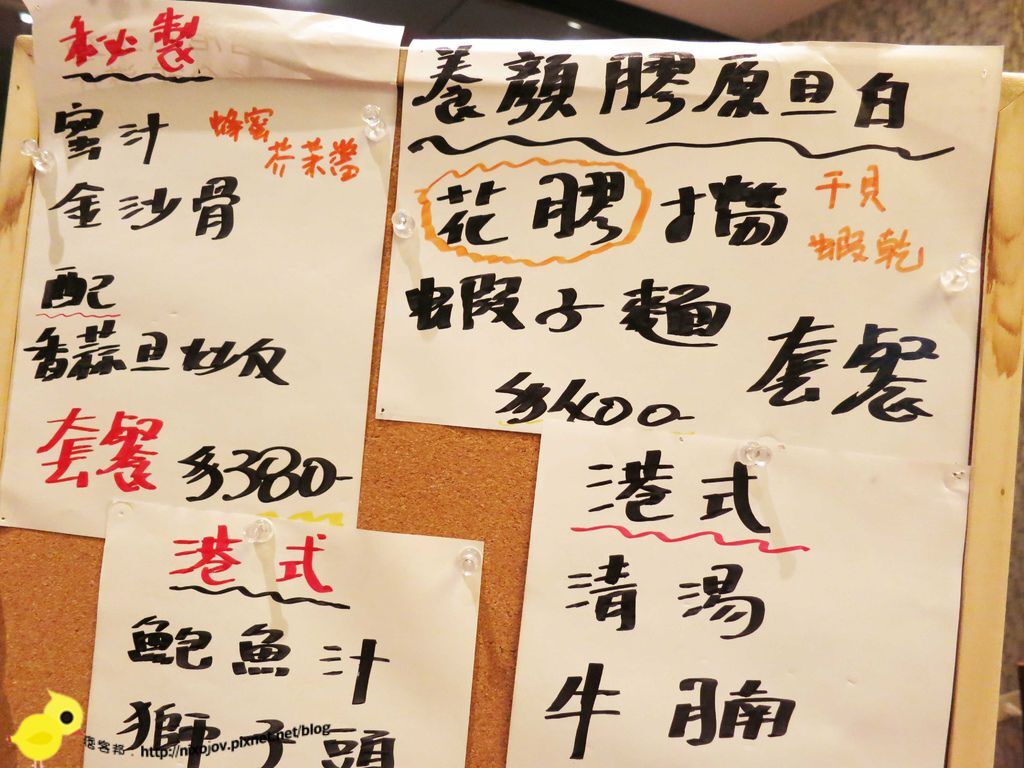 秘製
蜜汁
蜂蜜
芥茉醬
金沙骨
配
香蒜旦炒反
套餐 $380-
養顏膠原旦白
花膠撈
干貝
蝦乾
蝦子麵
套餐
$400-
港式
鮑魚汁
獅子頭
港式
清湯
牛腩
痞客邦 http://nixojov.pixnet.net/blog